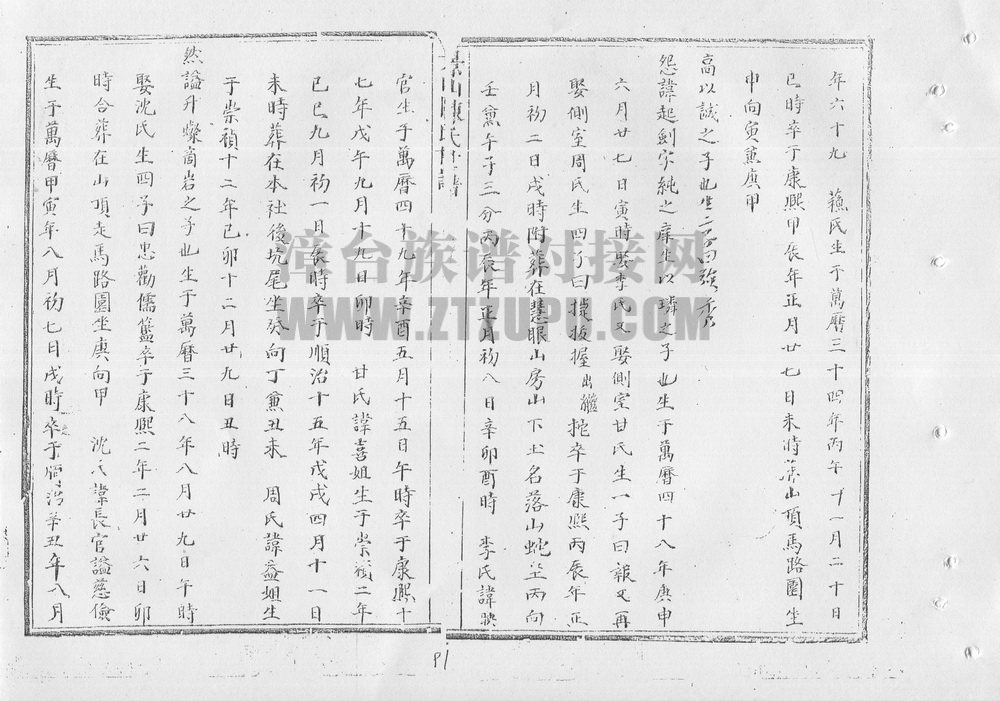 年六十九 蘓氏生于萬曆三十四年丙午十一月二十日
巳時卒于康熙甲辰年正月廿七日未時葬山頂馬路園坐
申向寅兼庚甲
高以誠之子也生二子曰
怨諱起釗字純之庠生以璘之子也生于萬曆四十八年庚申
六月廿七日寅時娶李氏又娶側室甘氏生一子曰報又再
娶側室周氏生四子曰援掖握出繼拕卒于康熙丙辰年正
月初二日戌時附葬在慧眼山房山下土名落山蛇坐丙向
壬兼午子三分丙辰年正月初八日辛卯酉時 李氏諱映
陳氏族譜
官生于萬曆四十九年辛酉五月十五日午時卒于康熙十
七年戊午九月十九日卯時 甘氏諱喜姐生于崇禎二年
己巳九月初一日辰時卒于順治十五年戊戌四月十一日
未時葬在本社後坑尾坐癸向丁兼丑未 周氏諱益姐生
于崇禎十二年己卯十二月廿九日丑時
然謚升燦商岩之子也生于萬曆三十八年八月廿九日午時
娶沈氏生四子曰忠勸儒籃卒于康熙二年二月廿六日卯
時合葬在山頂走馬路園坐庚向甲 沈氏諱長官謚慈儉
生于萬曆甲寅年八月初七日戌時卒于順治辛丑年八月
漳台族谱对接网
WWW.ZTZUPU.COM
P1